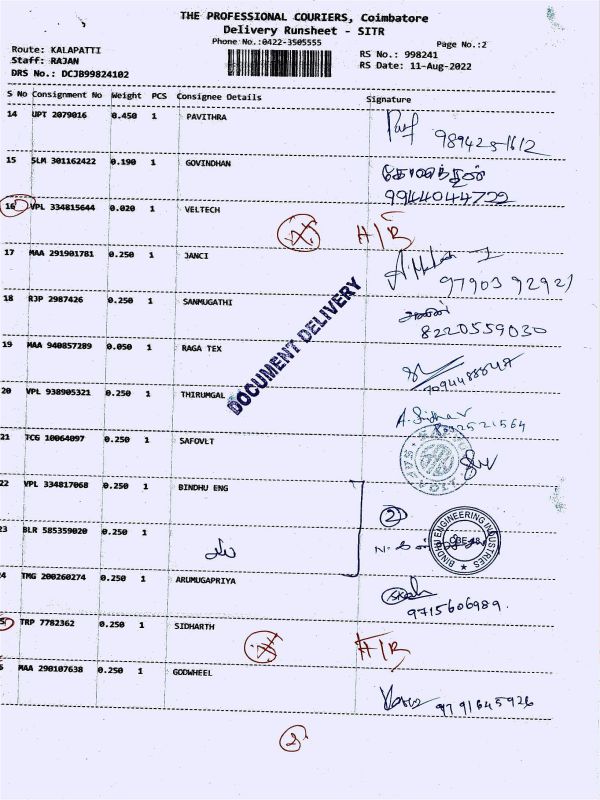 THE PROFESSIONAL COURIERS, Coimbatore
Delivery Runsheet - SITR
Phone No.:0422-3505555
Page No.:2
Route: KALAPATTI
Staff: RAJAN
RS No.: 998241
DRS No.: DCJB99824102
RS Date: 11-Aug-2022
S No Consignment No Weight PCS Consignee Details Signature
14 UPT 2079016 0.450 1 PAVITHRA
9894251612
15 SLM 301162422 0.190 1 GOVINDHAN
9944044722
16 VPL 334815644 0.020 1 VELTECH
17 MAA 291901781 0.250 1 JANCI
97903 92921
18 RJP 2987426 0.250 1 SANMUGATHI
8220559030
19 MAA 940857289 0.050 1 RAGA TEX
DOCUMENT DELIVERY
20 VPL 938905321 0.250 1 THIRUMGAL
21 TCG 10064097 0.250 1 SAFOVLT
22 VPL 334817068 0.250 1 BINDHU ENG
2
23 BLR 585359020 0.250 1
BINDHU ENGINEERING INDUSTRIES
24 TMG 200260274 0.250 1 ARUMUGAPRIYA
9715606989.
TRP 7782362 0.250 1 SIDHARTH
MAA 290107638 0.250 1 GODWHEEL
9791645926
2